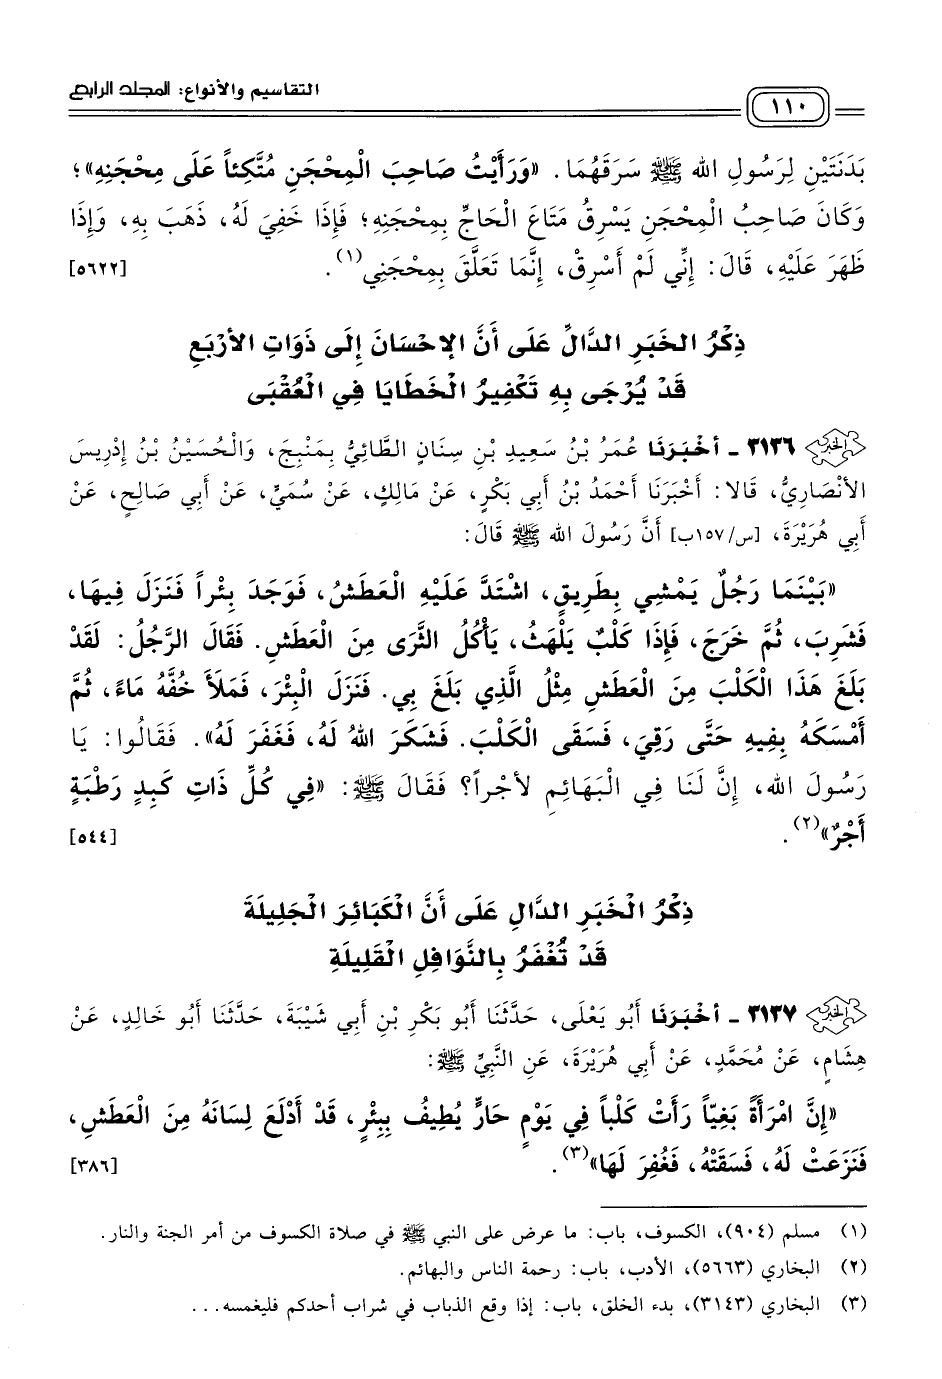 التقاسيم والأنواع: المجلد الرابع
١١٠
بَدَنَتَيْنِ لِرَسُولِ الله ﷺ سَرَقَهُمَا. «وَرَأَيْتُ صَاحِبَ الْمِحْجَنِ مُتَّكِئاً عَلَى مِحْجَنِهِ»؛
وَكَانَ صَاحِبُ الْمِحْجَنِ يَسْرِقُ مَتَاعَ الْحَاجِّ بِمِحْجَنِهِ؛ فَإِذَا خَفِيَ لَهُ، ذَهَبَ بِهِ، وَإِذَا
ظَهَرَ عَلَيْهِ، قَالَ: إِنِّي لَمْ أَسْرِقْ، إِنَّمَا تَعَلَّقَ بِمِحْجَنِي(١). [٥٦٢٢]
ذِكْرُ الخَبَرِ الدَّالِّ عَلَى أَنَّ الإِحْسَانَ إِلَى ذَوَاتِ الأَرْبَعِ
قَدْ يُرْجَى بِهِ تَكْفِيرُ الْخَطَايَا فِي الْعُقْبَى
٣١٣٦ - أَخْبَرَنَا عُمَرُ بْنُ سَعِيدِ بْنِ سِنَانٍ الطَّائِيُّ بِمَنْبِجَ، وَالْحُسَيْنُ بْنُ إِدْرِيسَ
الأَنْصَارِيُّ، قَالا: أَخْبَرَنَا أَحْمَدُ بْنُ أَبِي بَكْرٍ، عَنْ مَالِكٍ، عَنْ سُمَيٍّ، عَنْ أَبِي صَالِحٍ، عَنْ
أَبِي هُرَيْرَةَ، [س/١٥٧ب] أَنَّ رَسُولَ الله ﷺ قَالَ:
«بَيْنَمَا رَجُلٌ يَمْشِي بِطَرِيقٍ، اشْتَدَّ عَلَيْهِ الْعَطَشُ، فَوَجَدَ بِئْراً فَنَزَلَ فِيهَا،
فَشَرِبَ، ثُمَّ خَرَجَ، فَإِذَا كَلْبٌ يَلْهَثُ، يَأْكُلُ الثَّرَى مِنَ الْعَطَشِ. فَقَالَ الرَّجُلُ: لَقَدْ
بَلَغَ هَذَا الْكَلْبَ مِنَ الْعَطَشِ مِثْلُ الَّذِي بَلَغَ بِي. فَنَزَلَ الْبِئْرَ، فَمَلَأَ خُفَّهُ مَاءً، ثُمَّ
أَمْسَكَهُ بِفِيهِ حَتَّى رَقِيَ، فَسَقَى الْكَلْبَ. فَشَكَرَ اللهُ لَهُ، فَغَفَرَ لَهُ». فَقَالُوا: يَا
رَسُولَ الله، إِنَّ لَنَا فِي الْبَهَائِمِ لأَجْراً؟ فَقَالَ ﷺ: «فِي كُلِّ ذَاتِ كَبِدٍ رَطْبَةٍ
أَجْرٌ»(٢). [٥٤٤]
ذِكْرُ الْخَبَرِ الدَّالِ عَلَى أَنَّ الْكَبَائِرَ الْجَلِيلَةَ
قَدْ تُغْفَرُ بِالنَّوَافِلِ الْقَلِيلَةِ
٣١٣٧ - أَخْبَرَنَا أَبُو يَعْلَى، حَدَّثَنَا أَبُو بَكْرِ بْنِ أَبِي شَيْبَةَ، حَدَّثَنَا أَبُو خَالِدٍ، عَنْ
هِشَامٍ، عَنْ مُحَمَّدٍ، عَنْ أَبِي هُرَيْرَةَ، عَنِ النَّبِيِّ ﷺ:
«إِنَّ امْرَأَةً بَغِيّاً رَأَتْ كَلْباً فِي يَوْمٍ حَارٍّ يُطِيفُ بِبِئْرٍ، قَدْ أَدْلَعَ لِسَانَهُ مِنَ الْعَطَشِ،
فَنَزَعَتْ لَهُ، فَسَقَتْهُ، فَغُفِرَ لَهَا»(٣). [٣٨٦]
(١) مسلم (٩٠٤)، الكسوف، باب: ما عرض على النبي ﷺ في صلاة الكسوف من أمر الجنة والنار.
(٢) البخاري (٥٦٦٣)، الأدب، باب: رحمة الناس والبهائم.
(٣) البخاري (٣١٤٣)، بدء الخلق، باب: إذا وقع الذباب في شراب أحدكم فليغمسه...